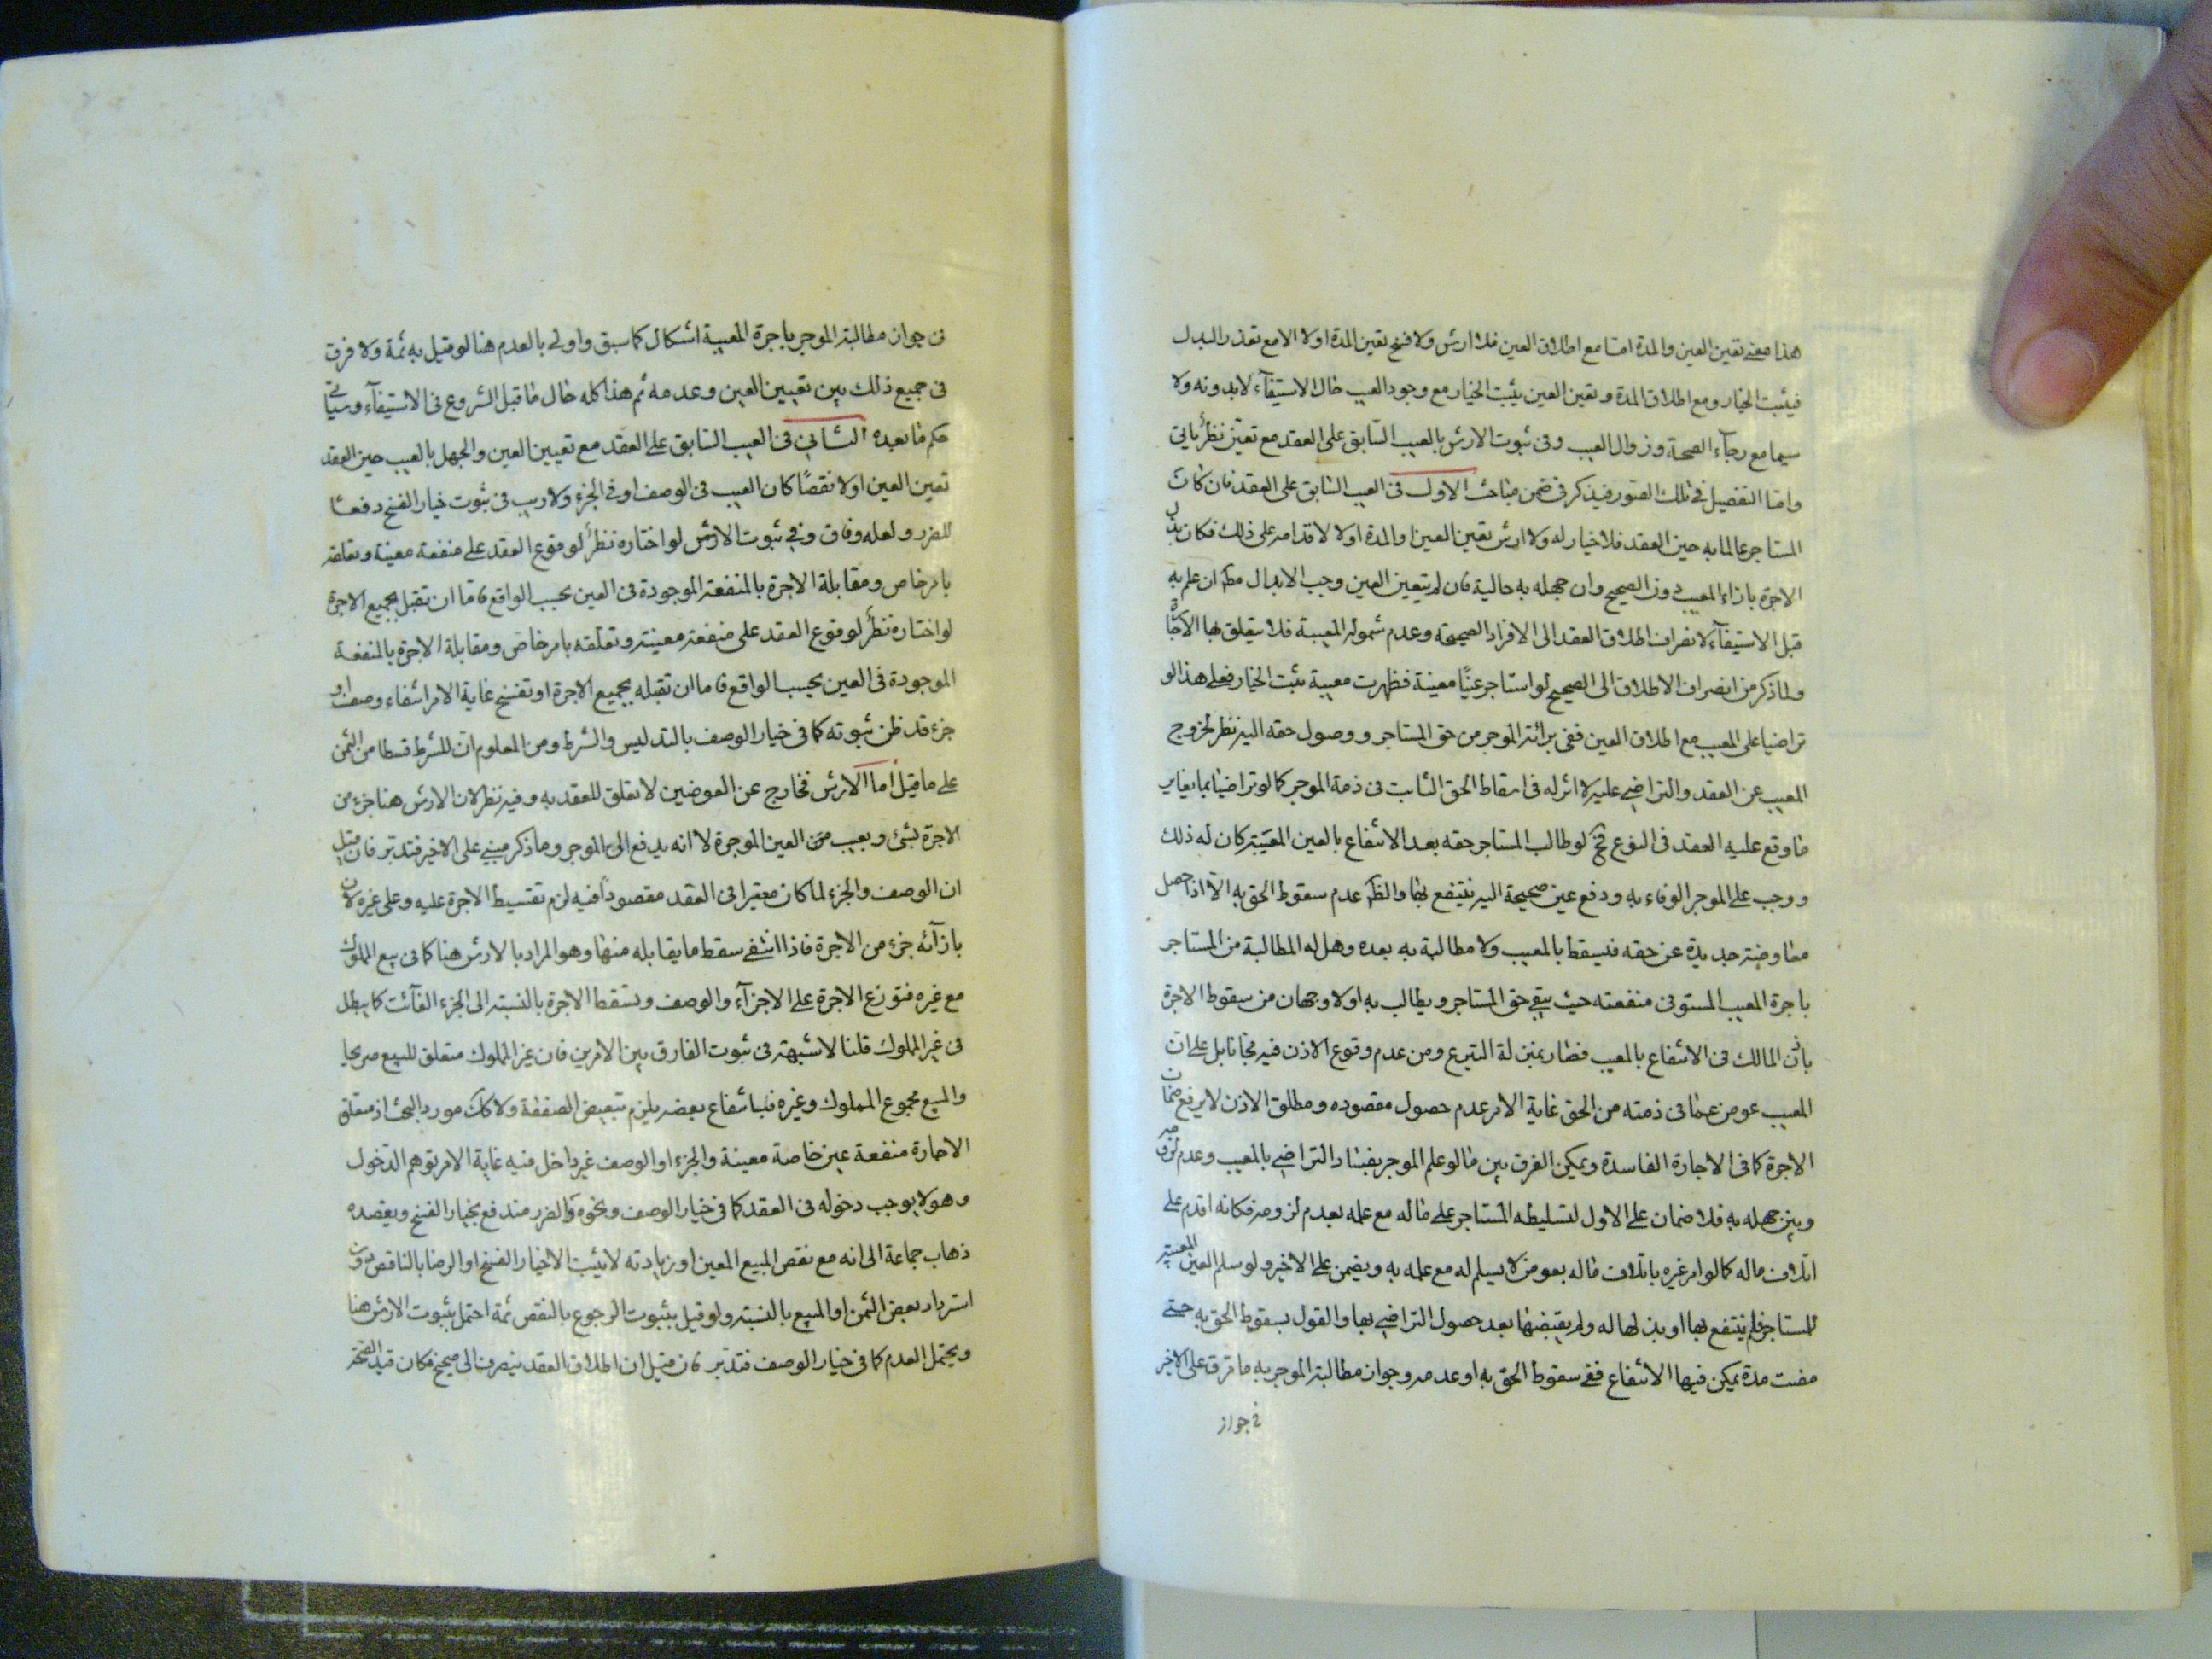 هذا مع تعين العين والمدة امّا مع اطلاق العين فلا ارش ولا فسخ تعين المدة اولا الا مع تعذر البدل
فيثبت الخيار ومع اطلاق المدة وتعين العين يثبت الخيار مع وجود العيب حال الاستيفآء لا بدونه ولا
سيما مع رجآء الصحة وزوال العيب وفى ثبوت الارش بالعيب السّابق على العقد مع تعيّن نظر ياتى
وامّا التفصيل فى تلك الصّور فيذكر فى ضمن مباحث الاول فى العيب السّابق على العقد فان كان
المستاجر عالما به حين العقد فلا خيار له ولا ارش تعين العين او المدة اولا لاقدامه على ذلك فكان بذل
الاجرة بازاء المعيب دون الصحيح وان جهله به حالية فان لم يتعين العين وجب الابدال مطّ ان علم به
قبل الاستيفآء لانصراف اطلاق العقد الى الافراد الصحيحة وعدم شموله المعيبة فلا يتعلق بها الاجارة
ولما ذكر من انصراف الاطلاق الى الصحيح لو استاجر عينًا معينة فظهرت معيبة يثبت الخيار فعلى هذا لو
تراضيا على المعيب مع اطلاق العين ففى برائة الموجر من حق المستاجر ووصول حقه اليه نظر لخروج
المعيب عن العقد والتراضى عليه لا اثر له فى اسقاط الحق الثابت فى ذمة الموجر كما لو تراضيا بما يغاير
ما وقع عليه العقد فى النوع فح لو طالب المستاجر حقه بعد الانتفاع بالعين المعيبة كان له ذلك
ووجب على الموجر الوفاء به ودفع عين صحيحة اليه ينتفع بها والظّ عدم سقوط الحق به الّا اذا حصل
معاوضة جديدة عن حقه فيسقط بالمعيب ولا مطالبة به بعده وهل له المطالبة من المستاجر
باجرة المعيب المستوفى منفعته حيث يبقى حق المستاجر ويطالب به اولا وجهان من سقوط الاجرة
باذن المالك فى الانتفاع بالمعيب فصار بمنزلة التبرع ومن عدم وقوع الاذن فيه مجانا بل على ان
المعيب عوض عما فى ذمته من الحق غاية الامر عدم حصول مقصوده ومطلق الاذن لا يرفع ضمان
الاجرة كما فى الاجارة الفاسدة ويمكن الفرق بين ما لو علم الموجر بفساد التراضى بالمعيب وعدم لزومه
وبين جهله به فلا ضمان على الاول لتسليطه المستاجر على ماله مع علمه بعدم لزومه فكانه اقدم على
اتلاف ماله كما لو امر غيره باتلاف ماله بعوض لا يسلم له مع علمه به ويضمن على الاخير ولو سلم العين المعيبة
للمستاجر فلم ينتفع بها او بذلها له ولم يقبضها بعد حصول التراضى بها والقول بسقوط الحق به حتى
مضت مدة يمكن فيها الانتفاع ففى سقوط الحق به او عدمه وجواز مطالبة الموجر به ما مرّ فعلى الاخير
فى جواز
فى جواز مطالبة الموجر باجرة المعيبة اشكال كما سبق واولى بالعدم هنا لو قيل به ثمة ولا فرق
فى جميع ذلك بين تعيين العين وعدمه ثم هذا كله حال ما قبل الشروع فى الاستيفآء وسياتى
حكم ما بعده الثانى فى العيب السابق على العقد مع تعيين العين والجهل بالعيب حين العقد
تعين العين اولا نقصًا كان العيب فى الوصف او فى الجزء ولا ريب فى ثبوت خيار الفسخ دفعًا
للضرر ولعله وفاق وفى ثبوت الارش لو اختاره نظر لوقوع العقد على منفعة معينة وتعلقه
بامر خاص ومقابلة الاجرة بالمنفعة الموجودة فى العين بحسب الواقع فاما ان تقبل بجميع الاجرة
لو اختاره نظر لوقوع العقد على منفعة معينة وتعلقه بامر خاص ومقابلة الاجرة بالمنفعة
الموجودة فى العين بحسب الواقع فاما ان تقبله بجميع الاجرة او تفسخ غاية الامر انتفاء وصف او
جزء قد ظن ثبوته كما فى خيار الوصف بالتدليس والشرط ومن المعلوم ان للشرط قسطا من الثمن
على ما قيل اما الارش فخارج عن العوضين لا تعلق للعقد به وفيه نظر لان الارش هنا جزء من
الاجرة بشئ وبعيب من العين الموجرة لا انه يدفع الى الموجر وما ذكر مبنى على الاخير فتدبر فان قيل
ان الوصف والجزء لما كان معتبرا فى العقد مقصودا فيه لزم تقسيط الاجرة عليه وعلى غيره لان
بازآئه جزء من الاجرة فاذا انتفى سقط ما يقابله منها وهو المراد بالارش هنا كما فى بيع المملوك
مع غيره فتوزع الاجرة على الاجزآء والوصف ويسقط الاجرة بالنسبة الى الجزء الفآئت كما يبطل
فى غير المملوك قلنا لا شبهة فى ثبوت الفارق بين الامرين فان غير المملوك متعلق للبيع صريحا
والمبيع مجموع المملوك وغيره فبانتفاع بعضه يلزم تبعيض الصفقة ولا كك مورد البحث اذ متعلق
الاجارة منفعة عين خاصة معينة والجزء او الوصف غير داخل فيه غاية الامر توهم الدخول
وهو لا يوجب دخوله فى العقد كما فى خيار الوصف ونحوه والضرر مندفع بخيار الفسخ ويعضده
ذهاب جماعة الى انه مع نقص المبيع المعين او زيادته لا يثبت الا خيار الفسخ او الرضا بالناقص دون
استرداد بعض الثمن او المبيع بالنسبة ولو قيل بثبوت الرجوع بالنقص ثمة احتمل ثبوت الارش هنا
ويحتمل العدم كما فى خيار الوصف فتدبّر فان قيل ان اطلاق العقد ينصرف الى صحيح فكان قيد الصحة